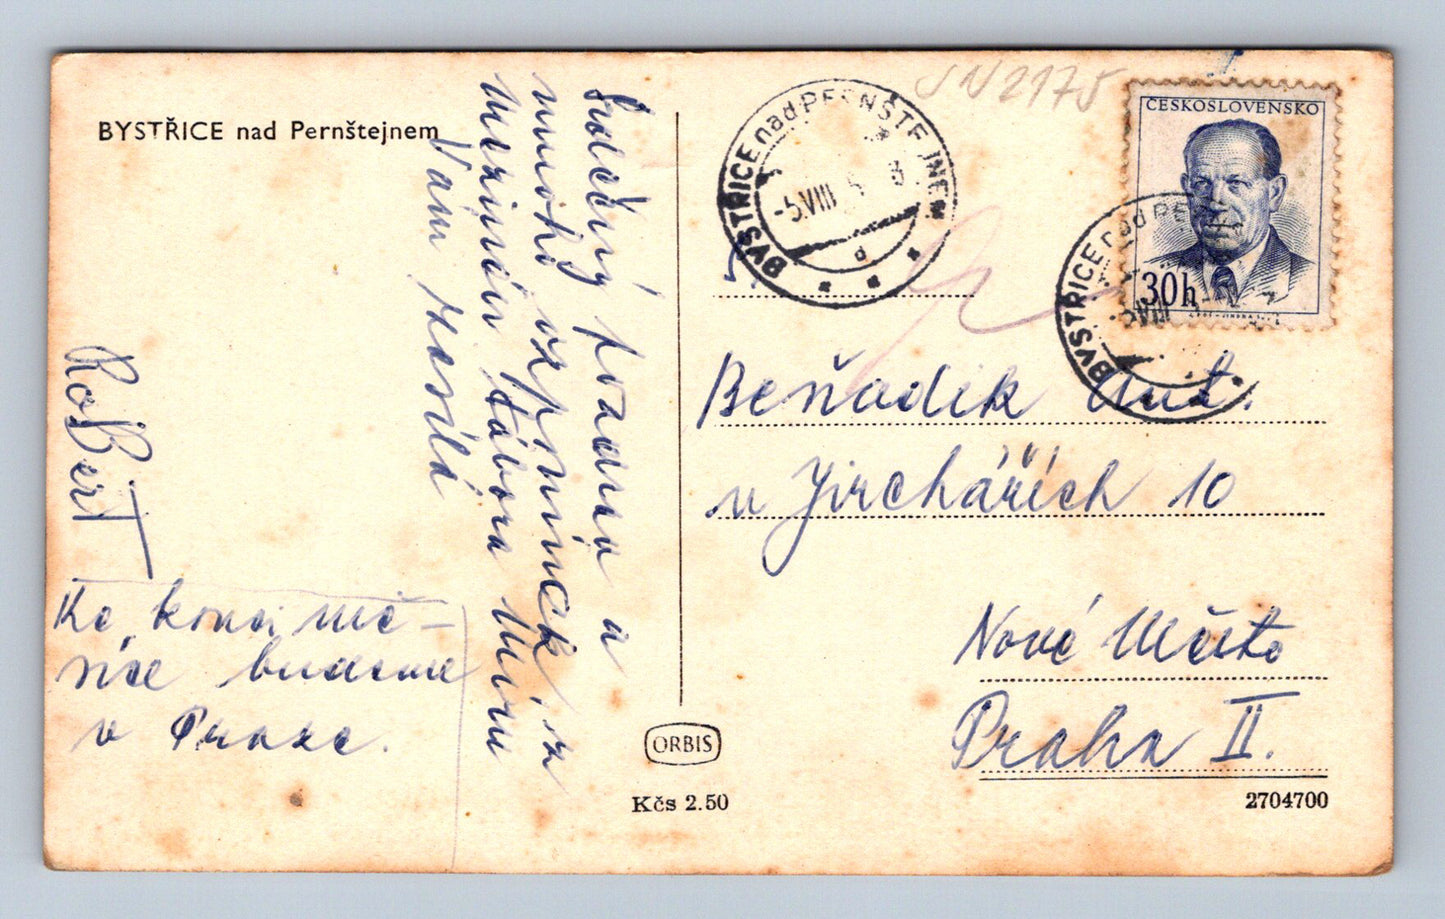 BYSTŘICE nad Pernštejnem
Srdečný pozdrav a
mnoho vzpomínek z
mezinár. tábora Míru
Vám zasílá
RoBerT
Ke konci mě-
síce budeme
v Praze.
ORBIS
Kčs 2.50
JN2175
BYSTŘICE nad PERNŠTEJNEM
-5.VIII
ČESKOSLOVENSKO
30h
BYSTŘICE nad PE
VIII
Beňadik Ant.
v Jirchářích 10
Nové Město
Praha II.
2704700